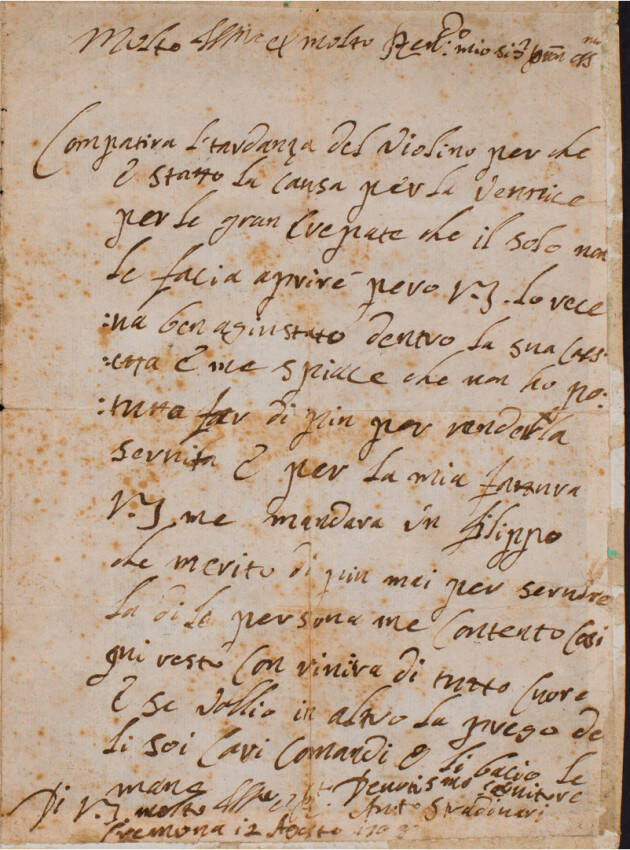 Molto Illre et molto Rendo: mio sigr pron
Compatira l'tardanza del Violino per che
è statto la causa per la Vernice
per le gran Crepate che il sole non
le facia aprire però V.S. lo rece
:va ben agiustato dentro la sua Cas-
:etta è me spiace che non ho po:
:tutto far di piu per renderla
servita è per la mia fattura
V.S. me mandara un Filippo
che merito di piu mai per servire
la di le persona me Contento Cosi
qui resto con rivirla di tutto Cuore
è se vallio in altro la prego de
li soi Cari Comandi è li bacio le
mane
Di V.S. molto Illre Devotismo servitore
Anto Stradivari
Cremona 12 Agosto